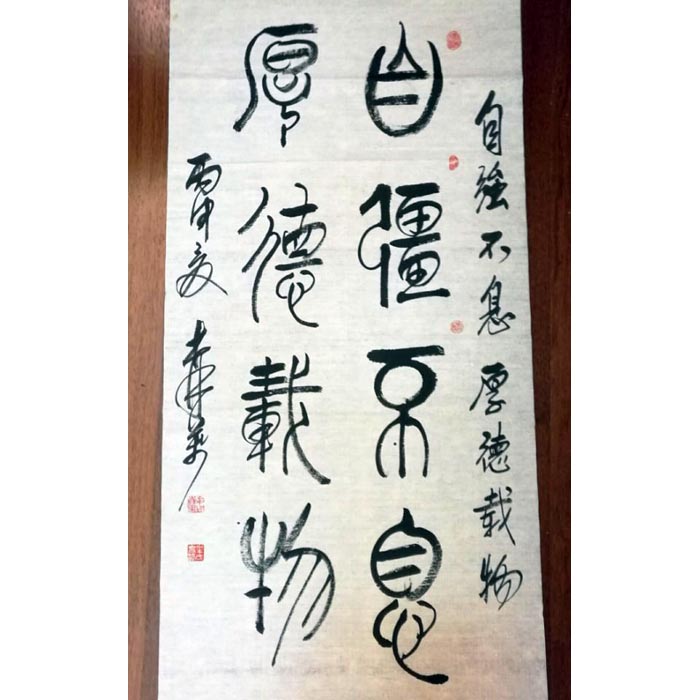 自強不息厚德載物
自彊不息
厚德載物
丙申夏